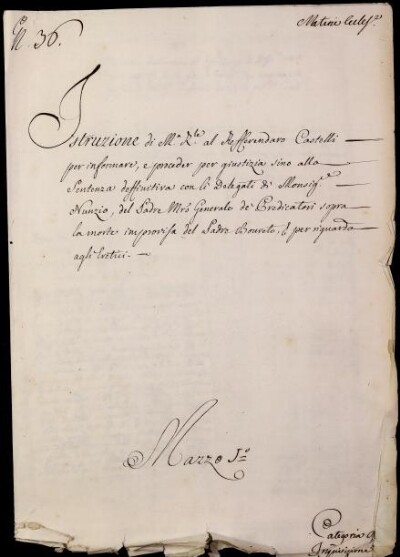 N. 36.
Materie Eccles.
Istruzione di M.a R.le al Refferendaro Castelli
per informare, e proceder per giustizia sino alla
Sentenza deffinitiva con li Delegati di Monsig.r
Nunzio, del Padre Mro Generale de Predicatori sopra
la morte improvisa del Padre Boureto, per riguardo
agli Eretici.
Mazzo 1.o
Categoria 9
Inquisizione